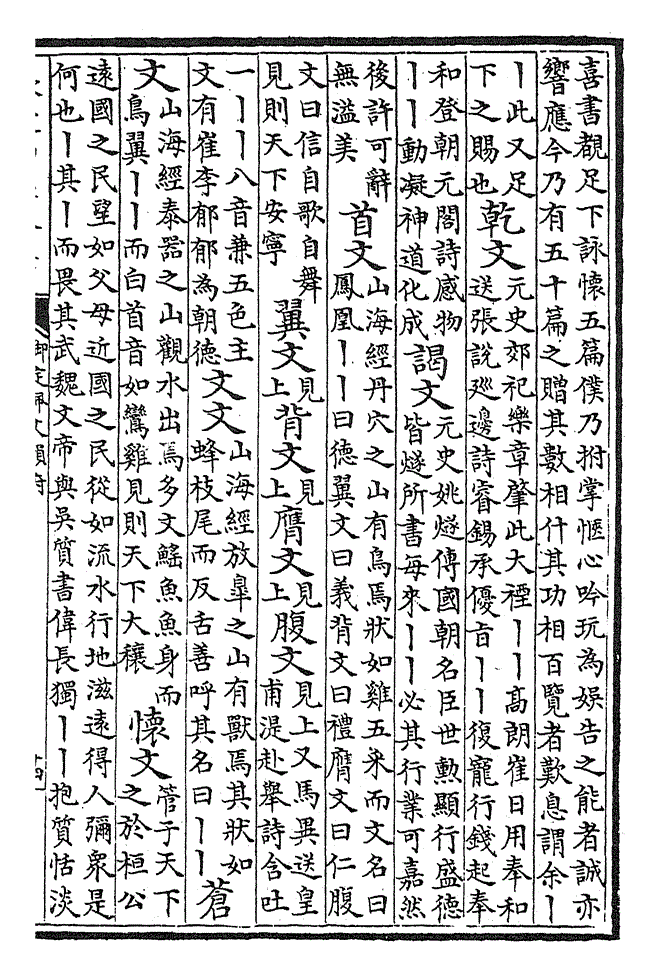 喜書覩足下詠懷五篇僕乃拊掌愜心吟玩為娛告之能者誠亦
響應今乃有五十篇之贈其數相什其功相百覽者歎息謂余丨
丨此又足
下之賜也
乾文
元史郊祀樂章肇此大禋丨丨髙朗崔日用奉和
送張說廵邊詩睿錫承優㫖丨丨復寵行錢起奉
和登朝元閣詩感物
丨丨動凝神道化成
謁文
元史姚燧傳國朝名臣世勲顯行盛德
皆燧所書每來丨丨必其行業可嘉然
後許可辭
無溢美
首文
山海經丹穴之山有鳥焉狀如雞五采而文名曰
鳳凰丨丨曰德翼文曰義背文曰禮膺文曰仁腹
文曰信自歌自舞
見則天下安寧
翼文
見
上
背文
見
上
膺文
見
上
腹文
見上又馬異送皇
甫湜赴舉詩含吐
一丨丨八音兼五色主
文有崔李郁郁為朝德
文文
山海經放臯之山有獸焉其狀如
蜂枝尾而反舌善呼其名曰丨丨
蒼
文
山海經泰器之山觀水出焉多文鰩魚魚身而
鳥翼丨丨而白首音如鸞雞見則天下大穰
懷文
管子天下
之於桓公
遠國之民望如父母近國之民從如流水行地滋遠得人彌衆是
何也丨其丨而畏其武魏文帝與吳質書偉長獨丨丨抱質恬淡
御定佩文韻府